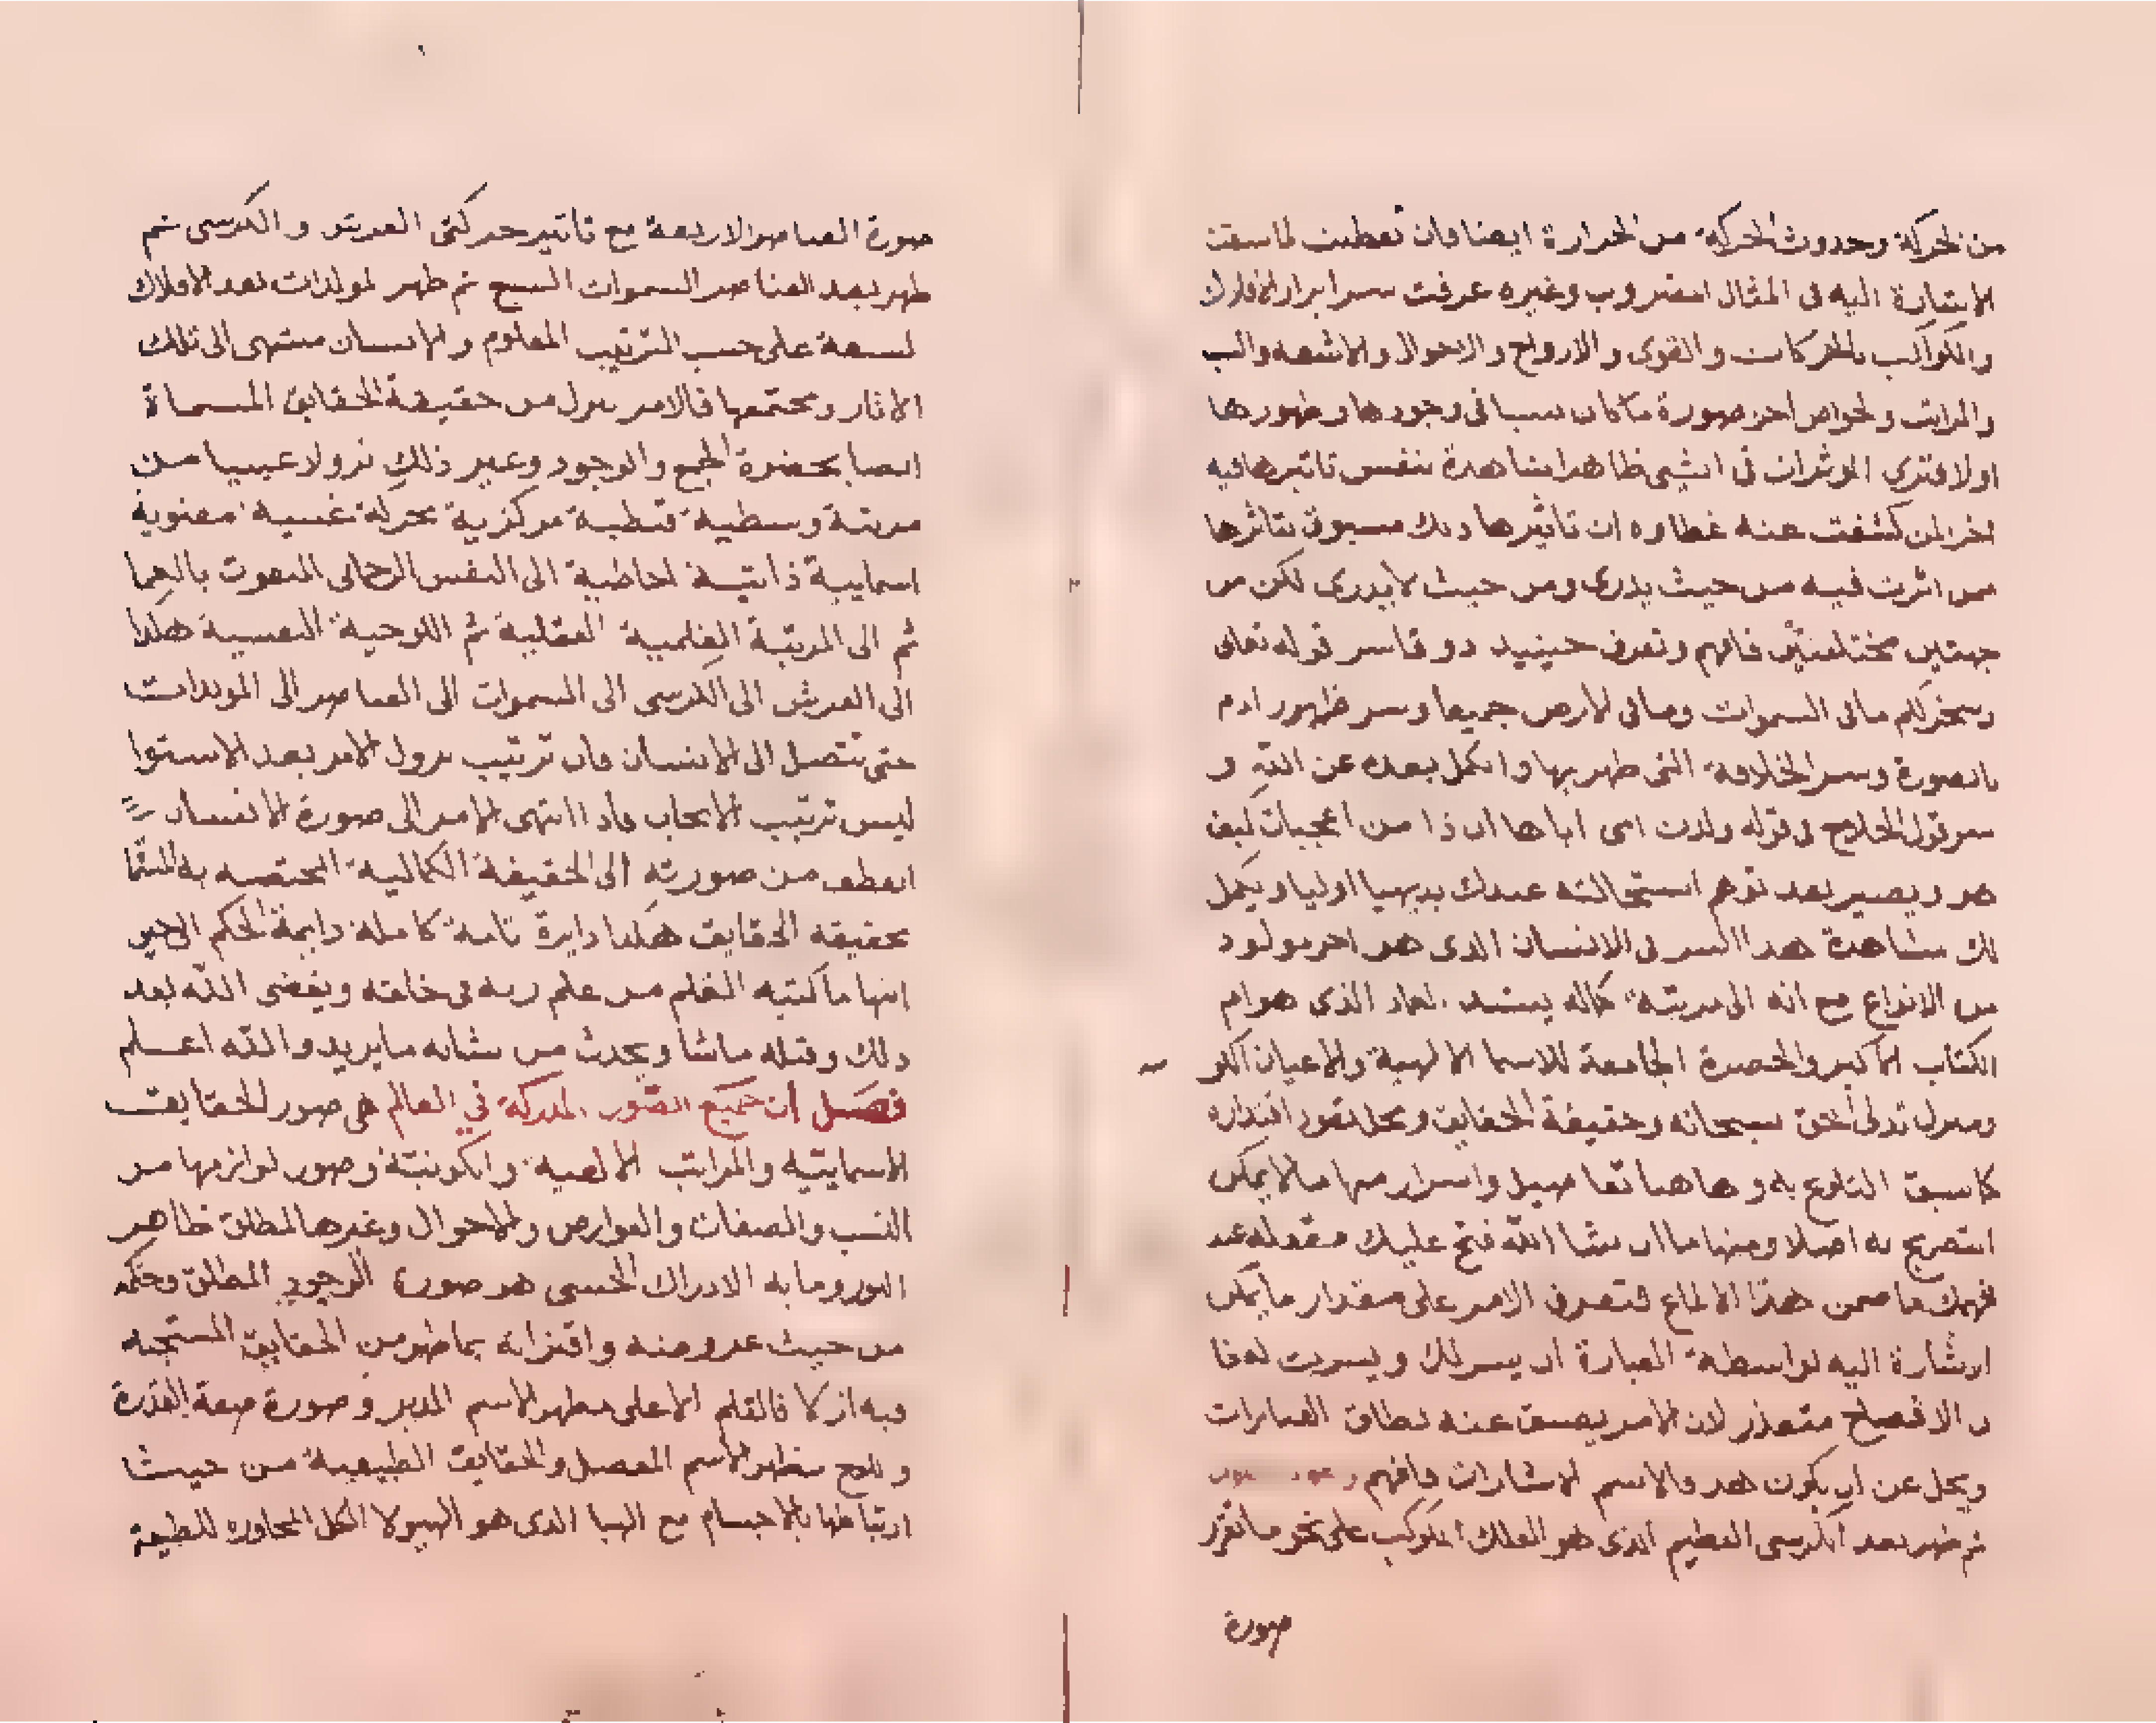 من الحركة وحدوث الحركة من الحرارة ايضا فان تفطنت لما سبقت
الاشارة اليه فى المثال المضروب وغيره عرفت سر ابراز الافلاك
والكواكب بالحركات والقوى والارواح والاحوال والاشعه والنسب
والمراتب والخواص اخر صورة ما كان سببا فى وجودها وظهورها
اولا فترى الموثرات فى الشى ظاهرا مشاهدة بنفس تاثيرها فيه
اخر المن كشفت عنه غطاوه ان تاثيرها ذلك مسبوق بتاثرها
ممن اثرت فيه من حيث يدرى ومن حيث لا يدرى لكن من
جهتين مختلفتين فافهم وتعرف حينيذ ذوقا سر قوله تعالى
وسخر لكم ما فى السموات وما فى الارض جميعا وسر ظهور ادم
بالصورة وسر الخلافة التى ظهر بها والكمل بعده عن الله و
سر قول الحلاج وقوله ولدت امى اباها ان ذا من اعجبات كيف
هو ويصير بعد توهم استحالته عندك بديهيا اوليا ويكمل
لك مشاهدة هذا السر فى الانسان الذى هو اخر مولود
من الانواع مع انه الى مرتبة كماله يستند العماء الذى هو ام
الكتاب الاكبر والحضرة الجامعة للاسما الالهية والاعيان الكو
ومنزل تدلى الحق سبحانه وحقيقة الحقايق ومحل نفوذ اقتداره
كما سبق التلويح به وهاهنا تفاصيل واسرار منها ما لا يمكن
التصريح به اصلا ومنها ما ان شا الله فتح عليك مقفله عند
فهمك ما ضمن هذا الالماع فتعرف الامر على مقدار ما يمكن
الاشارة اليه بواسطة العبارة ان يسر لك ويسرت له فا
ن الافصاح متعذر لان الامر يضيق عنه نطاق العبارات
ويجل عن ان يكون هدفا لاسهم الاشارات فافهم
ثم ظهر بعد الكرسى العظيم الذى هو الفلك المكوكب على نحو ما تقرر
صورة
صورة العناصر الاربعة مع تاثير حركتى العرش والكرسى ثم
ظهر بعد العناصر السموات السبع ثم ظهر المولدات بعد الافلاك
لسعة على حسب الترتيب المعلوم والانسان منتهى الى تلك
الاثار ومجتمعها فالامر ينزل من حقيقة الحقايق المسماة
ايضا بحضرة الجمع والوجود وغير ذلك نزولا غيبيا من
مرتبة وسطية قطبية مركزية بحركة غيبية معنوية
اسمايية ذاتية احاطية الى النفس الرحمانى المنعوت بالعما
ثم الى المرتبة القلمية العقلية ثم اللوحية النفسية هكذا
الى العرش الى الكرسى الى السموات الى العناصر الى المولدات
حتى تتصل الى الانسان فان ترتيب نزول الامر بعد الاستوا
ليس ترتيب الايجاب فاذا انتهى الامر الى صورة الانسان
انعطف من صورته الى الحقيقة الكمالية المختصه به المسما
بحقيقه الحقايق هكذا دايرة تامة كاملة دايمة الحكم الى حين
انتها ما كتبه القلم من علم ربه فى خلقه ويقضى الله بعد
ذلك وقبله ما شا ويحدث من شانه ما يريد والله اعلم
فصل ان جميع الصور المدركة في العالم هى صور الحقايق
الاسماييّه والمراتب الالهيه والكونيّة وصور لوازمها من
النسب والصفات والعوارض والاحوال وغيرها لمطلق ظاهر
النور وما به الادراك الحسى هو صورة الوجود المطلق وحكمه
من حيث عروضه واقترانه بما ظهر من الحقايق المستجنه
فيه ازلا فالقلم الاعلى مظهر الاسم المدبر وصورة صفة القدرة
واللوح مظهر الاسم المفصل والحقايق الطبيعية من حيث
ارتباطها بالاجسام مع الهبا الذى هو الهيولا الكل المجاوره للطبيعة